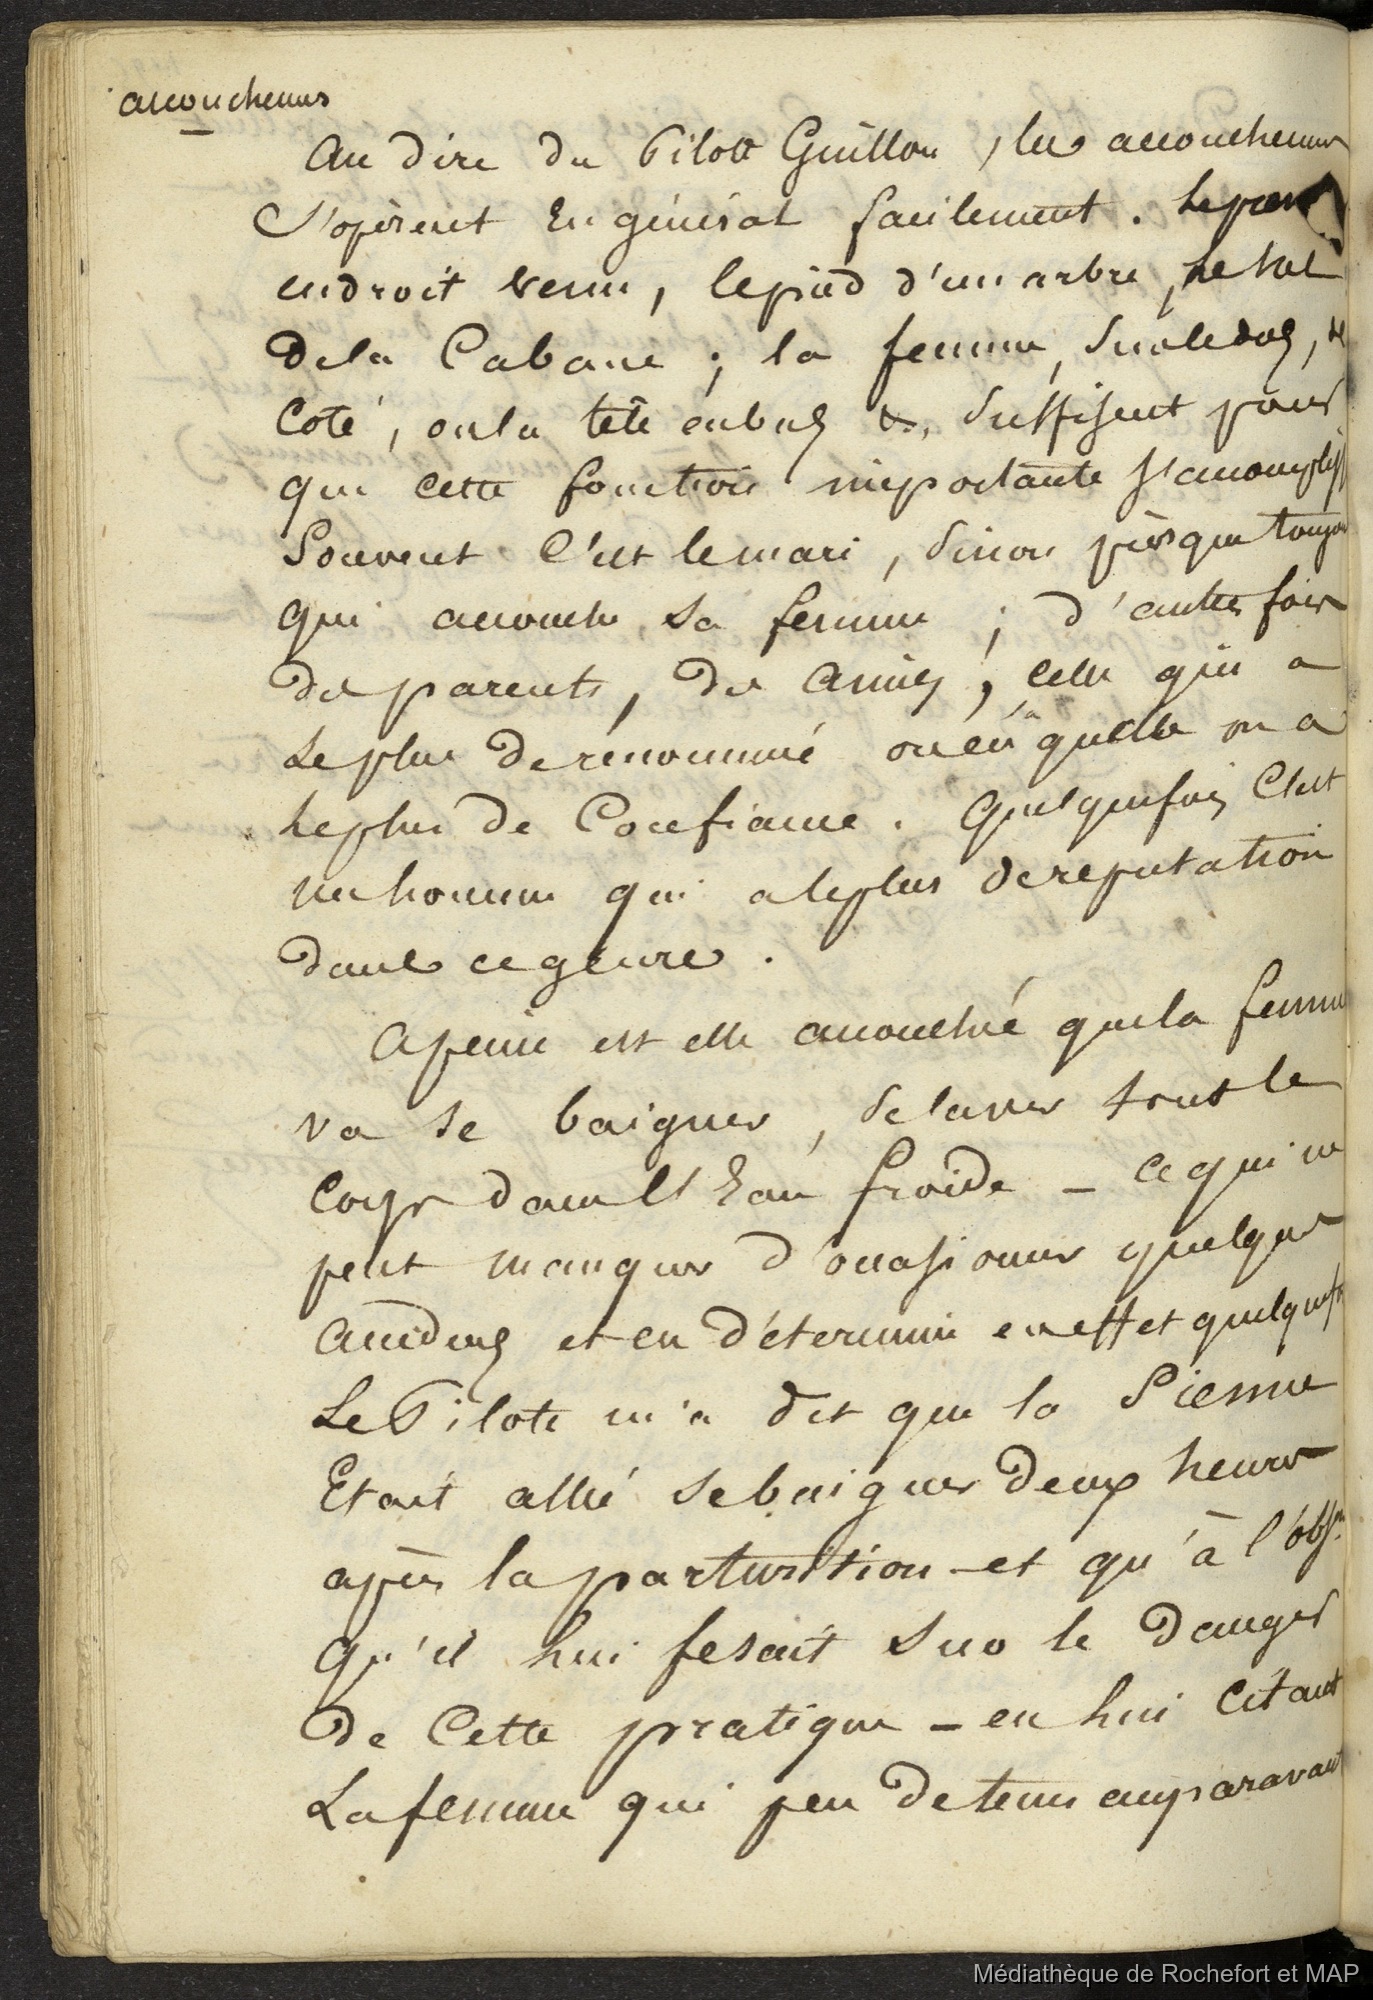 accouchemens
Au dire du Pilote Guillou, les accouchemens
s'opèrent en général facilement. Le premier
endroit venu, le pied d'un arbre, le sol
de la Cabane ; la femme, sur le dos, le
Coté, ou la tête en bas &., suffisent pour
que cette fonction importante s'accomplisse
Souvent C'est le mari, sinon presque toujours
qui accouche sa femme ; d'autres fois
des parents, des amies, celle qui a
le plus de renommée ou en quelle on a
le plus de Confiance. Quelquefois C'est
un homme qui a le plus de reputation
dans ce genre.
A peine est elle accouchée que la femme
va se baigner, se laver tout le
Corps dans l'Eau froide - ce qui ne
peut manquer d'occasioner quelques
accidens et en détermine en effet quelquefois
Le Pilote m'a dit que la Sienne
Etait allée se baigner deux heures
après la parturition - et qu'à l'obs.on
qu'il lui fesait sur le danger
de Cette pratique - en lui citant
La femme qui peu de tems auparavant
Médiathèque de Rochefort et MAP